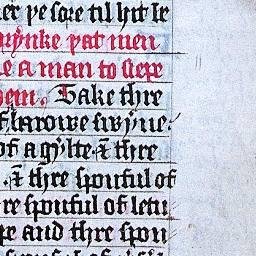 er þe sore til hit be
rynke þat men
e a man to slepe
hem. Take thre
f barowe swyne
of a gylte & thre
& thre sponful of
re sponful of letu
pe and thre spon